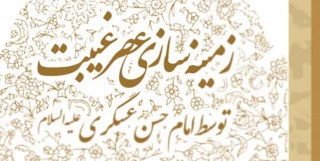 زمینه‌سازی عصر غیبت
توسط امام حسن عسکری علیه‌السلام